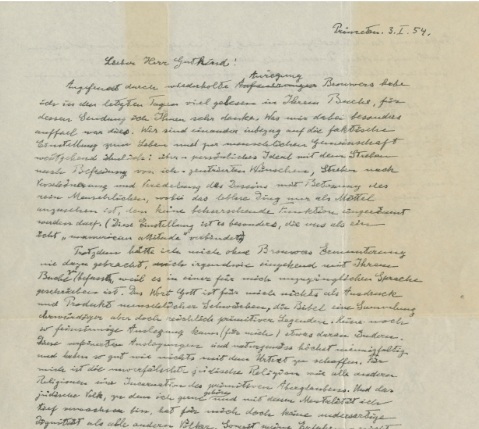 Princeton. 3. I. 54.
Lieber Herr Gutkind!
Angefeuert durch wiederholte Anregung Brouwers habe
ich in den letzten Tagen viel gelesen in Ihrem Buche, für
dessen Sendung ich Ihnen sehr danke. Was mir dabei besonders
auffiel war dies. Wir sind einander inbezug auf die faktische
Einstellung zum Leben und zur menschlichen Gemeinschaft
weitgehend ähnlich:
nach Befreiung von ich-zentrierten Wünschen, Streben nach
Verschönerung und Veredelung des Daseins mit Betonung des
rein Menschlichen, wobei das leblose Ding nur als Mittel
anzusehen ist, dem keine beherrschende Funktion eingeräumt
werden darf. (Diese Einstellung ist es besonders, die uns als ein
echt „unamerican attitude" verbindet)
Trotzdem hätte ich mich ohne Brouwers Ermunterung
nie dazu gebracht, mich irgendwie eingehend mit Ihrem
Buche zu befassen, weil es in einer für mich unzugänglichen Sprache
geschrieben ist. Das Wort Gott ist für mich nichts als Ausdruck
und Produkt menschlicher Schwächen, die Bibel eine Sammlung
ehrwürdiger aber doch reichlich primitiver Legenden. Keine noch
so feinsinnige Auslegung kann (für mich) etwas daran ändern.
Diese verfeinerten Auslegungen sind naturgemäss höchst mannigfaltig
und haben so gut wie nichts mit dem Urtext zu schaffen. Für
mich ist die unverfälschte jüdische Religion wie alle anderen
Religionen eine Incarnation des primitiven Aberglaubens. Und das
jüdische Volk, zu dem ich gerne gehöre und mit dessen Mentalität ich
tief verwachsen bin, hat für mich doch keine andersartige
Dignität als alle anderen Völker. Soweit meine Erfahrung reicht